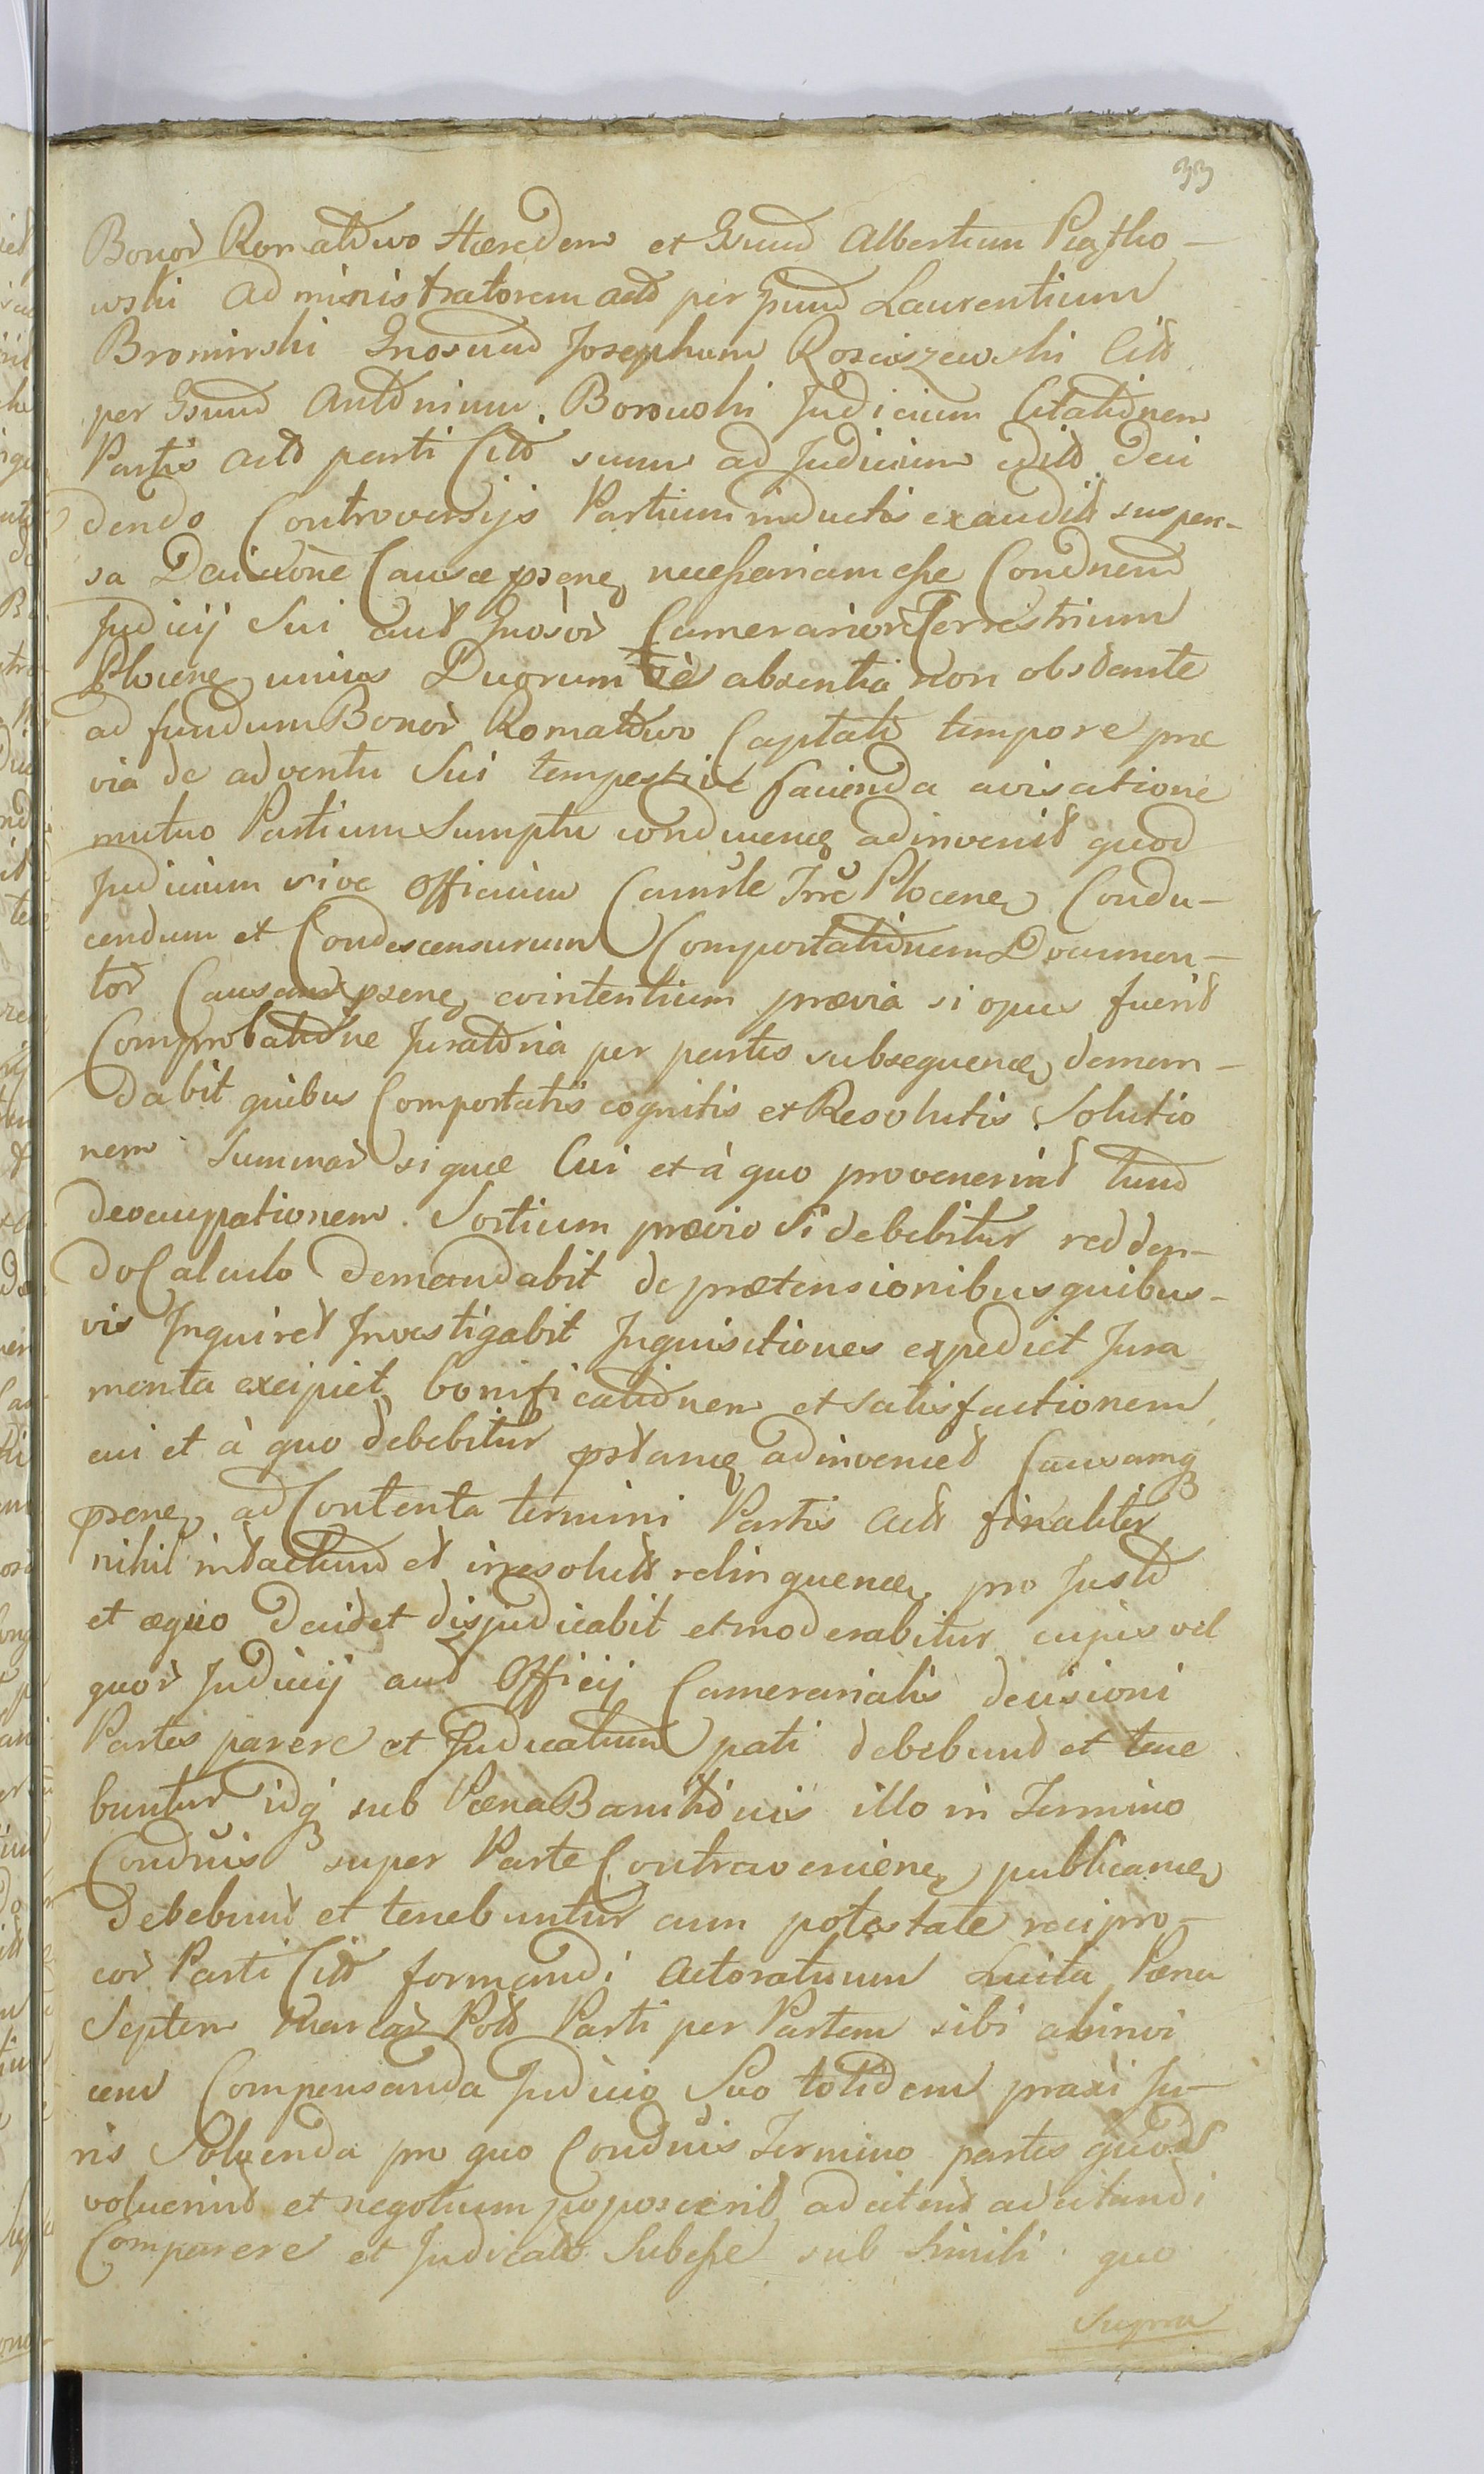 33
Bonor Romatowo Hæredem et Gsum Albertum Piątko-
wski Administratorem act per Gsum Laurentium
Brominski Gnosum Josephum Rosciszewski Cit
per Gsum Antonium Borowski Judicium Citationem
Partis act parti Cit suum ad Judicium edit deci
dendo Controversijs Partium inductis exaudit suspen-
sa Decisione Causæ psene necessariam esse Condnem
Judicij Sui aut Gnosor Camerarior Terrestrium
Plocene unius Duorum vè absentia non obstante
ad fundum Bonor Romatowo Captato tempore præ
via de adventu Sui tempestive facienda avisatione
mutuo Partium Sumptu conducene adinvenit quod
Judicium sive Officium Camrle Trre Plocene Condu-
cendum et Condescensurum Comportationem Documen-
tor Causam psene cointentium prævia si opus fuerit
Comprobatione Juratoria per partes subsequene deman-
dabit quibus Comportatis cognitis et Resolutis Solutio
nem Summar si quæ Cui et à quo provenerint tum
deocupationem Sortium prævio Si debebitur redden-
do Calculo demandabit de prætensionibus quibus-
vis Inquiret Investigabit Inquisitiones expediet Jura
menta excipiet bonificationem et satisfactionem
cui et à quo debebitur pstane adinveniet Causamq
psene ad Contenta termini Partis act finaliter
nihil intactum et irresolut relinquene pro Justo
et æquo decidet disjudicabit et moderabitur cujus vel
quor Judicij aut Officij Camerarialis decisioni
Partes parere et Judicatum pati debebunt et tene
buntur idq sub Pæna Banitionis illo in Termino
Condnis super Parte Contraveniene publicane
debebunt et tenebuntur cum potestate recipro-
cor Parti Cit formandi actoratuum Luita Pæna
Septem Marcar Pol Parti per Partem sibi abinvi
cem Compensanda Judicio Suo totidem praxi Ju-
ris Solvenda pro quo Condnis Termino partes quos
voluerint et negotium poposcerit adcitent adcitandi
Comparere et Judicato Subesse sub Simili quo
Supra